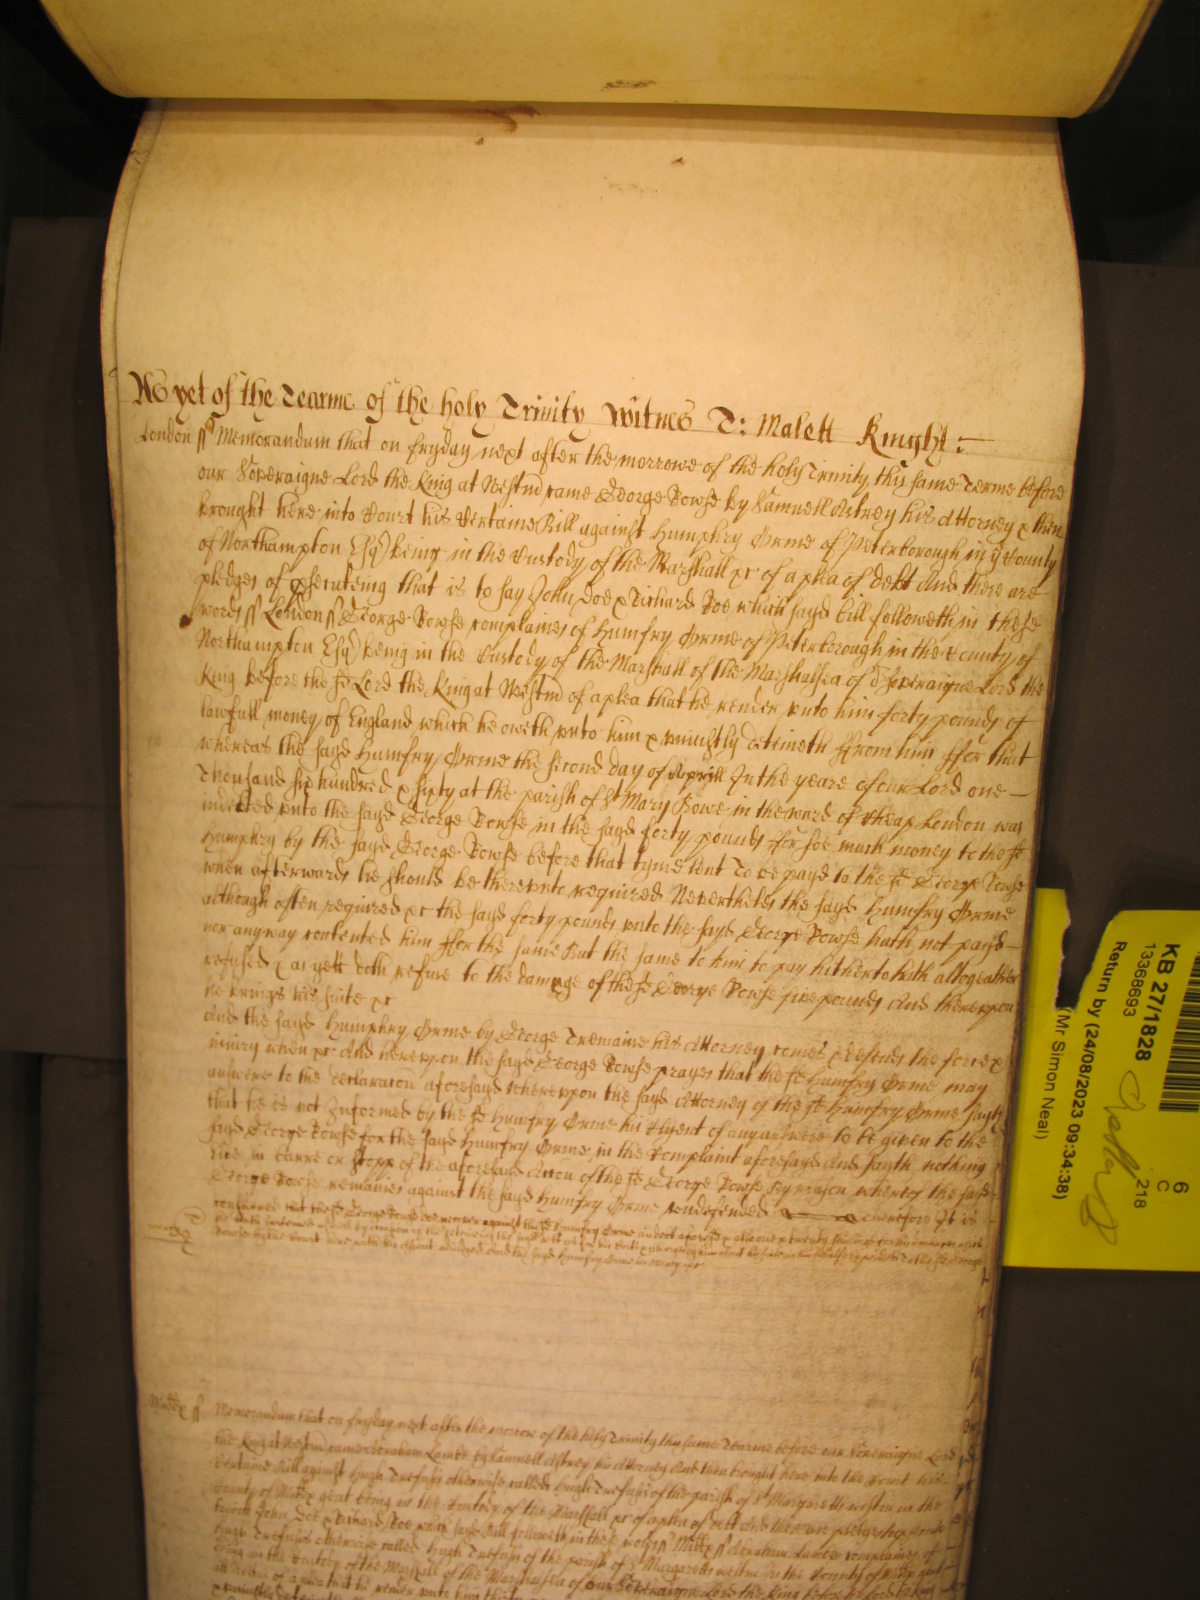 As yet of the Tearme of the holy Trinity Witnes T: Malett Knight:
London ss Memorandum that on fryday next after the morrowe of the holy Trinity this same Terme before
our Soveraigne Lord the King at Westm came George Rowse by Samuell Astrey his Attorney & then
brought here into Court his Certaine Bill against Humphry Orme of Peterborough in ye County
of Northampton Esq being in the Custody of the Marshall &c of a plea of debt And there are
pledges of prosecuteing that is to say John Doe & Richard Roe which sayd bill followeth in these
words ss London ss George Rowse complaines of Humfry Orme of Peterborough in the County of
Northampton Esq being in the Custody of the Marshall of the Marshalsea of or Soveraigne Lord the
King before the sd Lord the King at Westm of a plea that he render unto him forty pounds of
lawfull money of England which he oweth unto him & uniustly deteineth ffrom him ffor that
whereas the sayd Humfry Orme the second day of Aprill In the yeare of our Lord one
Thousand six hundred & sixty at the parish of St Mary Bowe in the ward of Cheap London was
indebted unto the sayd George Rowse in the sayd forty pounds ffor soe much money to the sd
Humphry by the sayd George Rowse before that tyme lent To be payd to the sd George Rowse
when afterwards he should be thereunto required Neverthelesse the sayd Humfry Orme
although often required &c the sayd forty pounds unto the sayd George Rowse hath not payd
nor anyway contented him ffor the same But the same to him to pay hitherto hath altogeather
refused & as yett doth refuse to the damage of the sd George Rowse five pounds And thereupon
he brings his suite &c
And the sayd Humphry Orme by George Tremaine his Attorney comes & defends the force &
iniury when &c And hereupon the sayd George Rowse prayes that the sd Humfry Orme may
answere to the declaracon aforesayd whereupon the sayd Attorney of the sd Humfry Orme sayth
that he is not Informed by the sd Humfry Orme his Clyent of any answere to be given to the
sayd George Rowse for the sayd Humfry Orme in the Complaint aforesayd And sayth nothing
else in barre or stopp of the aforesayd Accon of the sd George Rowse by reason whereof the sayd
George Rowse remaines against the sayd Humfry Orme undefended Therefore It is
considered that the sd George Rowse doe recover against the sd Humfry Orme his debt aforesd & alsoe one & twenty shillings for his damages which
he hath susteined as well by occasion of the deteining the sayd debt as for his costs & charges by him about his suite in this behalfe expended to the sd George
Rowse by the Court here with his assent adiudged And the sayd Humfry Orme in Mercy &c
Middx ss Memorandum that on fryday next after the morrow of the holy Trinity this same Tearme before our Soveraigne Lord
the King at Westm came Abraham Lambe by Samuell Astrey his Attorney And then brought here into the Court his
Certaine Bill against Hugh Trefusis otherwise called Hugh Trefusis of the parish of St Margaretts westm in the
County of Middx gent being in the Custody of the Marshall &c of a plea of debt And there are pledges to prosecute
towitt John Doe & Richard Roe which sayd Bill followeth in these words ss Middx ss Abraham Lambe complaines of
Hugh Trefusis otherwise called Hugh Trefusis of the parish of St Margaretts westm in the County of Middx gent
being in the Custody of the Marshall of the Marshalsea of our Soveraigne Lord the King before the Lord the King
KB 27/1828
13368693
Return by (24/08/2023 09:34:38)
(Mr Simon Neal)
218
6
C